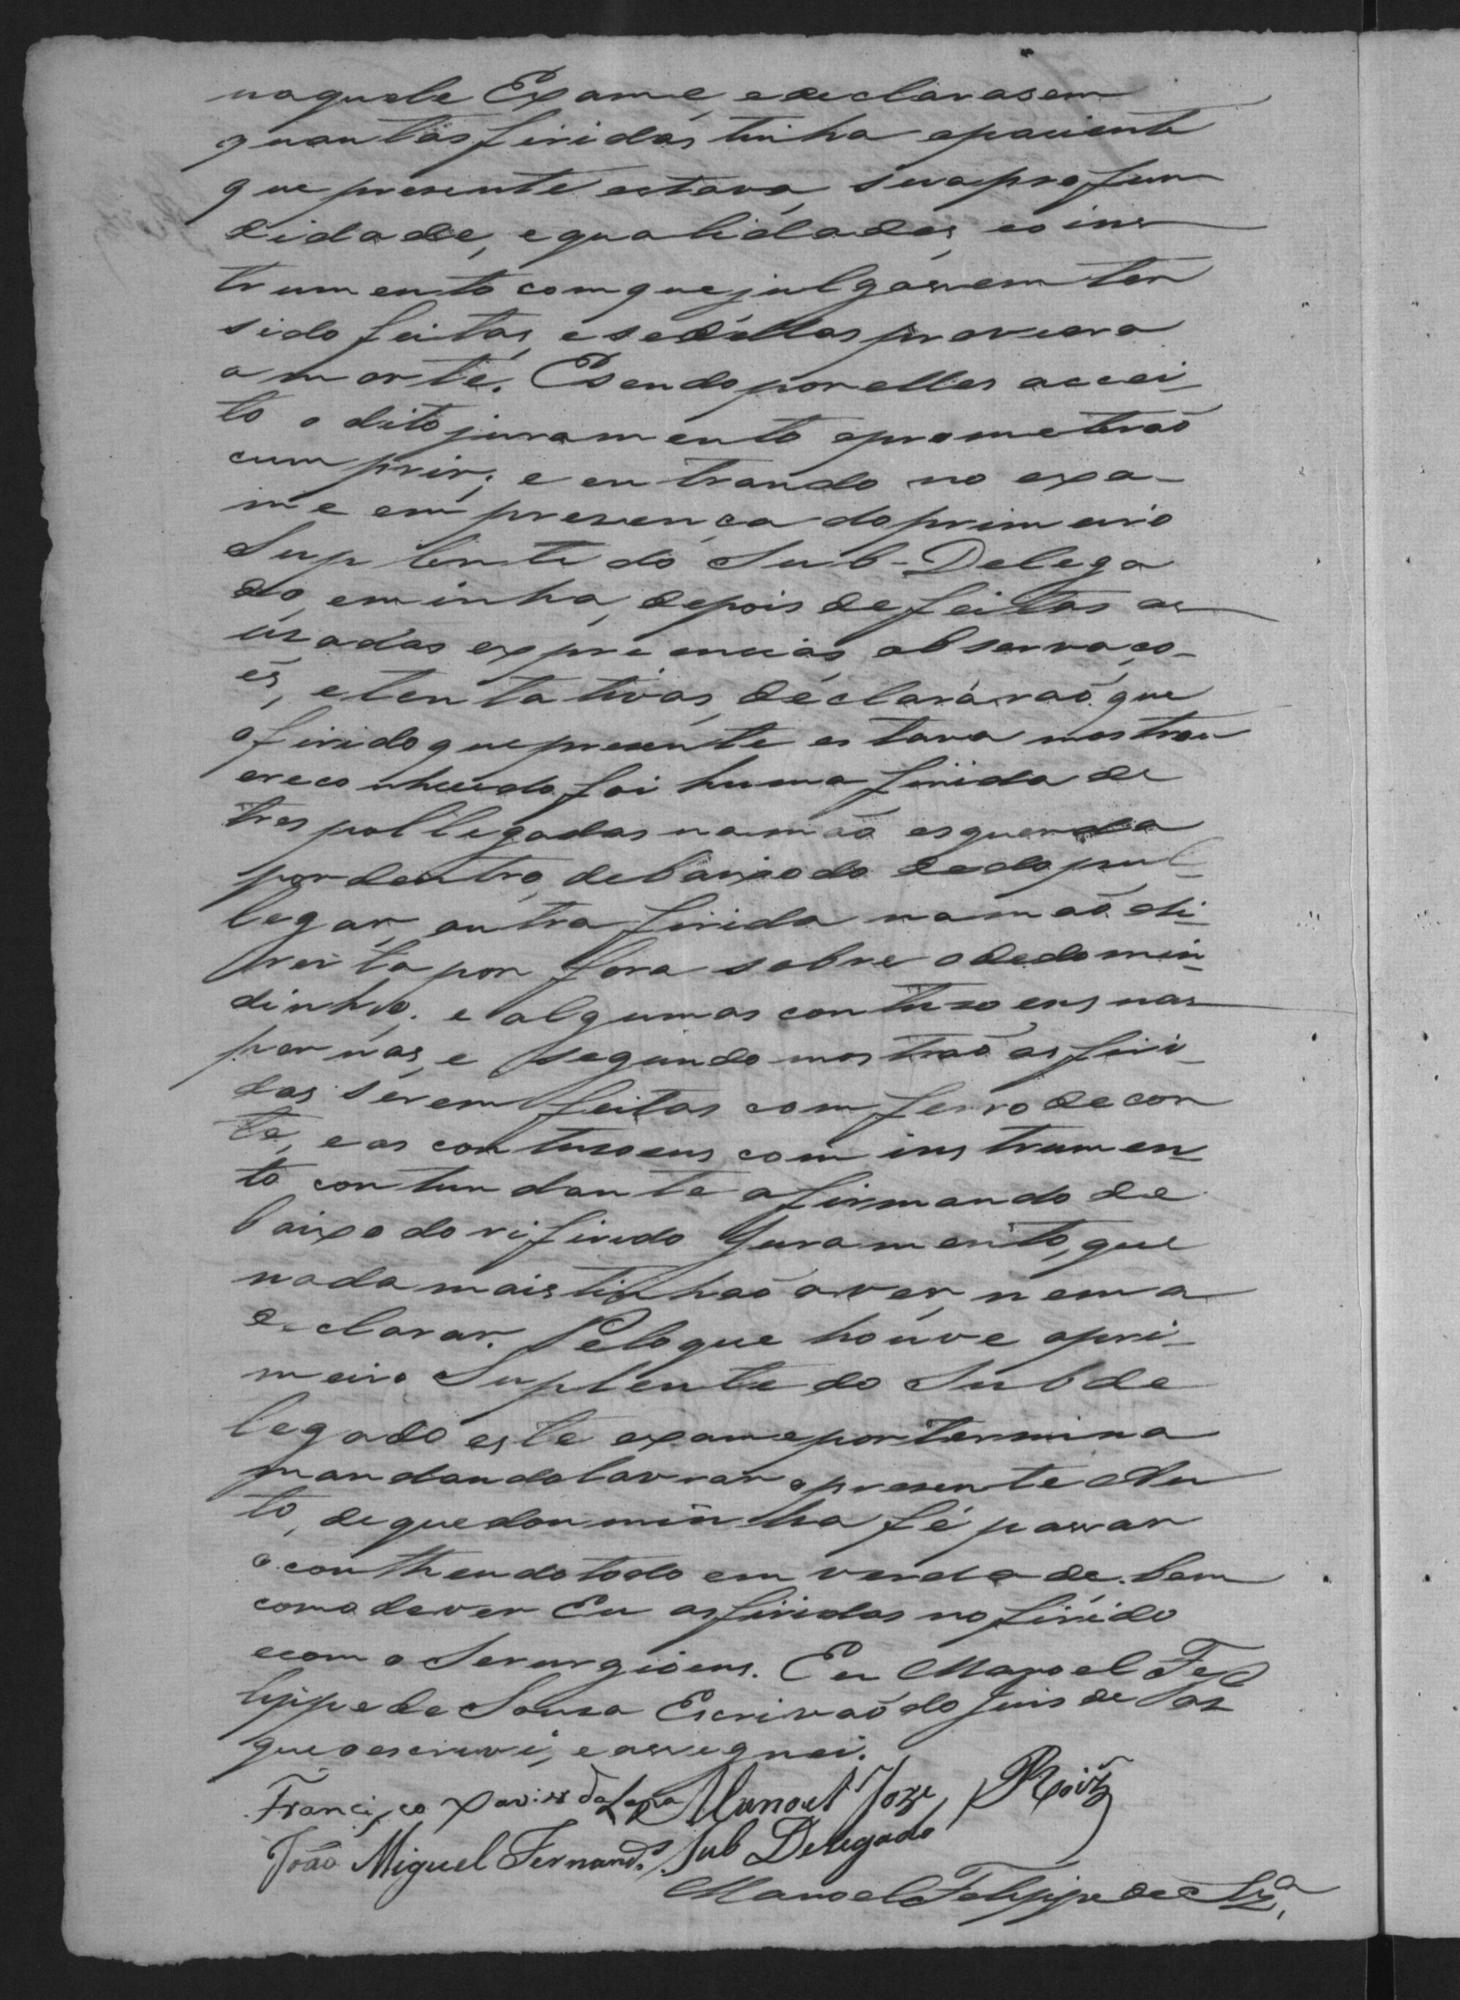 naquele Exame, e declarasem
quantas firidas tinha opaciente
que presente estava, sua profun
didade, equalidades, eoins
trumento com que julgassem ter
sido feitas, e se dellas proviera
amorte. Esendo por elles accei-
to o dito juramento eprometerão
cumprir; e entrando no exa-
me em presença do primeiro
Suplente do Sub-Delega
do, eminha, depois de feitas as
uzadas expriencias, observaço-
es, etentativas, declarárão que
ofirido que presente estava mostrou
ereconhecido foi huma firida de
tres pollegadas namão esquerda
por dentro, debaixo do dedo pul-
legar, outra firida namão di-
reita por fora sobre odedo min-
dinho, e algumas contusoens nas
pernas, e segundo mostrão as firi-
das serem feitas com ferro de cor
te, e as contusoens com instrumen-
to contundante afirmando de
baixo do rifirido Juramento, que
nada mais tinhão aver, nem a
declarar. Pelo que houve opri-
meiro Suplente do Subde
legado este exame por termina
mandando lavrar opresente Au
to, de que dou minha fé passar
o conthendo todo em verdade. bem
como de ver Eu as firidas no firido
ecom o Serurgioens. Eu Manoel Fe
lippe de Sousa Escrivão do Juis de Pas
que o escrevi, eassegnei.
Francisco Xavier da Lapa Manoel Joze Roiz
João Miguel Fernand.s Sub Delegado
Manoel Felippe de Sz.a